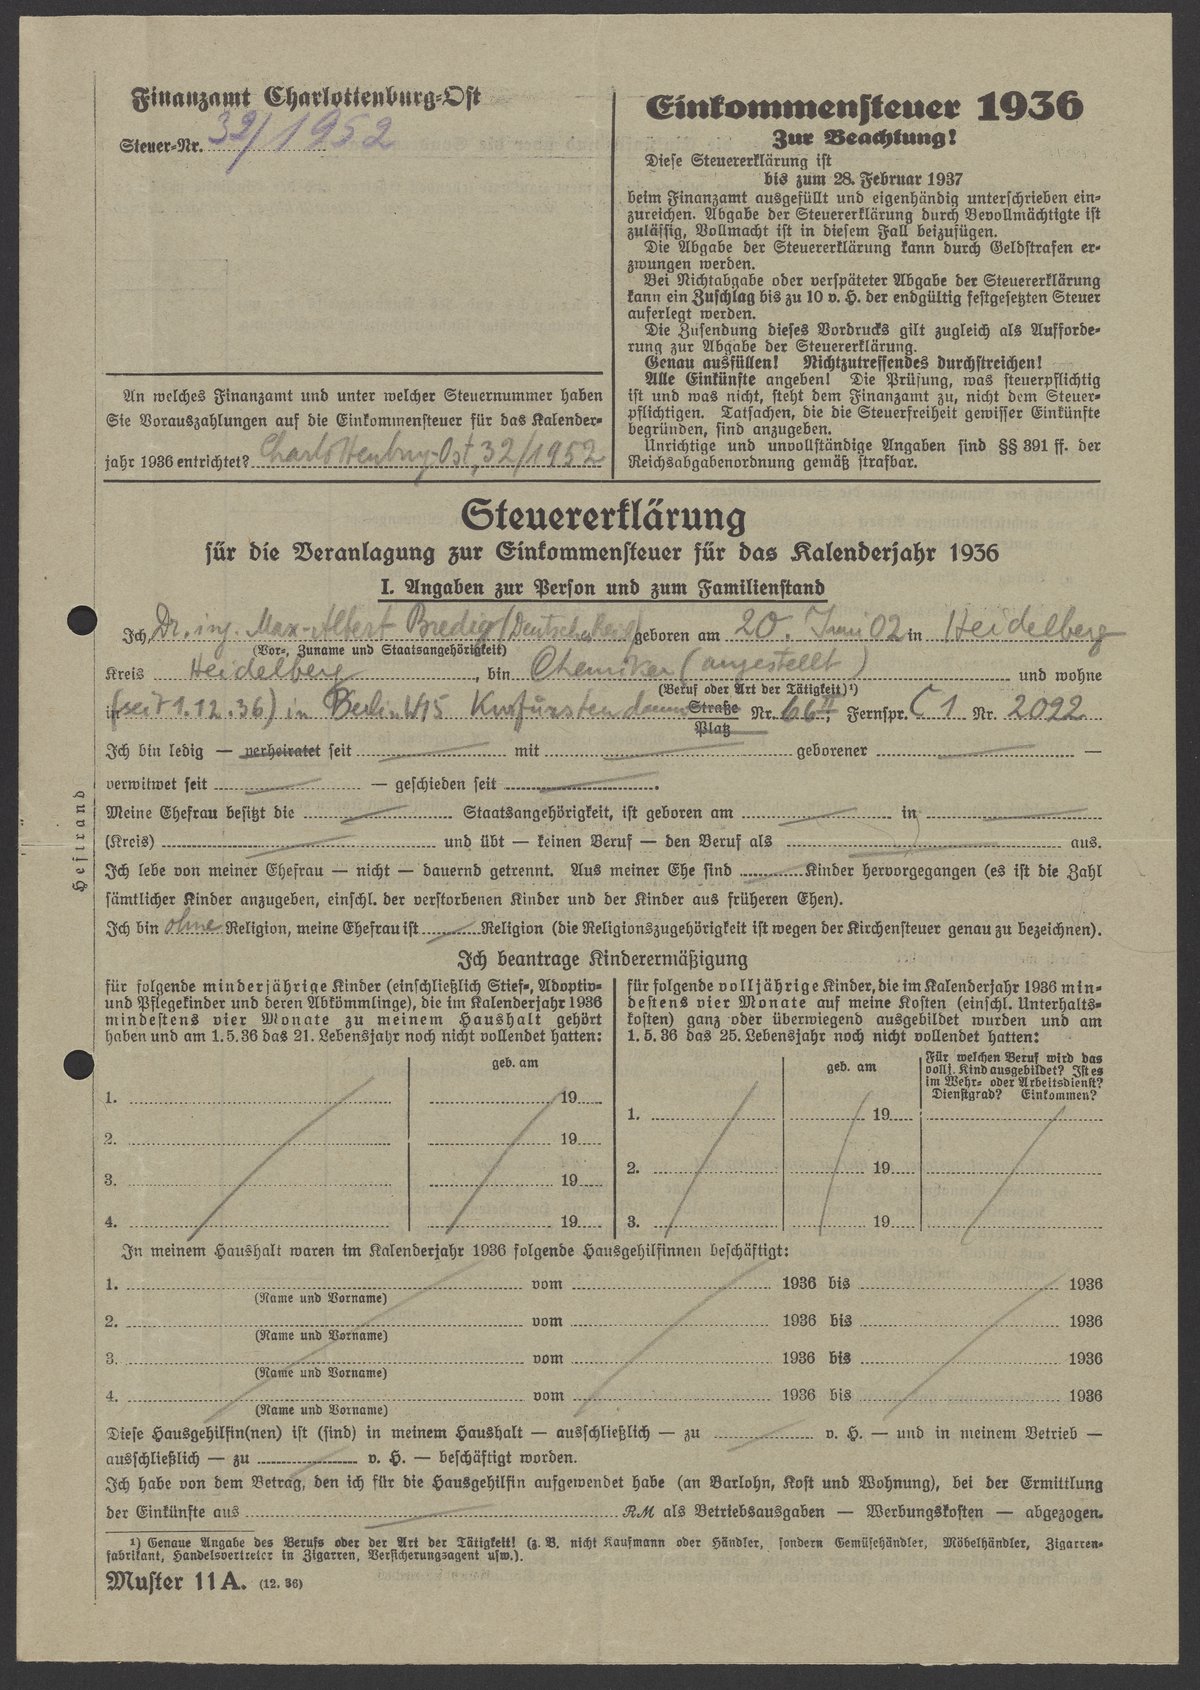 Finanzamt Charlottenburg-Ost
Steuer-Nr. 32/1952
Einkommensteuer 1936
Zur Beachtung!
Diese Steuererklärung ist
bis zum 28. Februar 1937
beim Finanzamt ausgefüllt und eigenhändig unterschrieben ein-
zureichen. Abgabe der Steuererklärung durch Bevollmächtigte ist
zulässig, Vollmacht ist in diesem Fall beizufügen.
Die Abgabe der Steuererklärung kann durch Geldstrafen er-
zwungen werden.
Bei Nichtabgabe oder verspäteter Abgabe der Steuererklärung
kann ein Zuschlag bis zu 10 v. H. der endgültig festgesetzten Steuer
auferlegt werden.
Die Zusendung dieses Vordrucks gilt zugleich als Aufforde-
rung zur Abgabe der Steuererklärung.
Genau ausfüllen! Nichtzutreffendes durchstreichen!
Alle Einkünfte angeben! Die Prüfung, was steuerpflichtig
ist und was nicht, steht dem Finanzamt zu, nicht dem Steuer-
pflichtigen. Tatsachen, die die Steuerfreiheit gewisser Einkünfte
begründen, sind anzugeben.
Unrichtige und unvollständige Angaben sind §§ 391 ff. der
Reichsabgabenordnung gemäß strafbar.
An welches Finanzamt und unter welcher Steuernummer haben
Sie Vorauszahlungen auf die Einkommensteuer für das Kalender-
jahr 1936 entrichtet? Charlottenburg-Ost, 32/1952
Steuererklärung
für die Veranlagung zur Einkommensteuer für das Kalenderjahr 1936
I. Angaben zur Person und zum Familienstand
Ich, Dr. ing. Max-Albert Bredig (Deutsches Reich) geboren am 20. Juni 02 in Heidelberg
(Vor-, Zuname und Staatsangehörigkeit)
Kreis Heidelberg, bin Chemiker (angestellt) und wohne
(Beruf oder Art der Tätigkeit) ¹)
in (seit 1.12.36) in Berlin W15 Kurfürstendamm Straße Nr. 66 II, Fernspr. C1 Nr. 2092
Platz
Ich bin ledig — verheiratet seit mit geborener —
verwitwet seit — geschieden seit .
Meine Ehefrau besitzt die Staatsangehörigkeit, ist geboren am in
(Kreis) und übt — keinen Beruf — den Beruf als aus.
Ich lebe von meiner Ehefrau — nicht — dauernd getrennt. Aus meiner Ehe sind Kinder hervorgegangen (es ist die Zahl
sämtlicher Kinder anzugeben, einschl. der verstorbenen Kinder und der Kinder aus früheren Ehen).
Ich bin ohne Religion, meine Ehefrau ist Religion (die Religionszugehörigkeit ist wegen der Kirchensteuer genau zu bezeichnen).
Heftrand
Ich beantrage Kinderermäßigung
für folgende minderjährige Kinder (einschließlich Stief-, Adoptiv-
und Pflegekinder und deren Abkömmlinge), die im Kalenderjahr 1936
mindestens vier Monate zu meinem Haushalt gehört
haben und am 1. 5. 36 das 21. Lebensjahr noch nicht vollendet hatten:
geb. am
1. 19
2. 19
3. 19
4. 19
für folgende volljährige Kinder, die im Kalenderjahr 1936 min-
destens vier Monate auf meine Kosten (einschl. Unterhalts-
kosten) ganz oder überwiegend ausgebildet wurden und am
1. 5. 36 das 25. Lebensjahr noch nicht vollendet hatten:
geb. am
Für welchen Beruf wird das
vollj. Kind ausgebildet? Ist es
im Wehr- oder Arbeitsdienst?
Dienstgrad? Einkommen?
1. 19
2. 19
3. 19
In meinem Haushalt waren im Kalenderjahr 1936 folgende Hausgehilfinnen beschäftigt:
1. vom 1936 bis 1936
(Name und Vorname)
2. vom 1936 bis 1936
(Name und Vorname)
3. vom 1936 bis 1936
(Name und Vorname)
4. vom 1936 bis 1936
(Name und Vorname)
Diese Hausgehilfin(nen) ist (sind) in meinem Haushalt — ausschließlich — zu v. H. — und in meinem Betrieb —
ausschließlich — zu v. H. — beschäftigt worden.
Ich habe von dem Betrag, den ich für die Hausgehilfin aufgewendet habe (an Barlohn, Kost und Wohnung), bei der Ermittlung
der Einkünfte aus RM als Betriebsausgaben — Werbungskosten — abgezogen.
¹) Genaue Angabe des Berufs oder der Art der Tätigkeit! (z. B. nicht Kaufmann oder Händler, sondern Gemüsehändler, Möbelhändler, Zigarren-
fabrikant, Handelsvertreter in Zigarren, Versicherungsagent usw.).
Muster 11 A. (12. 36)